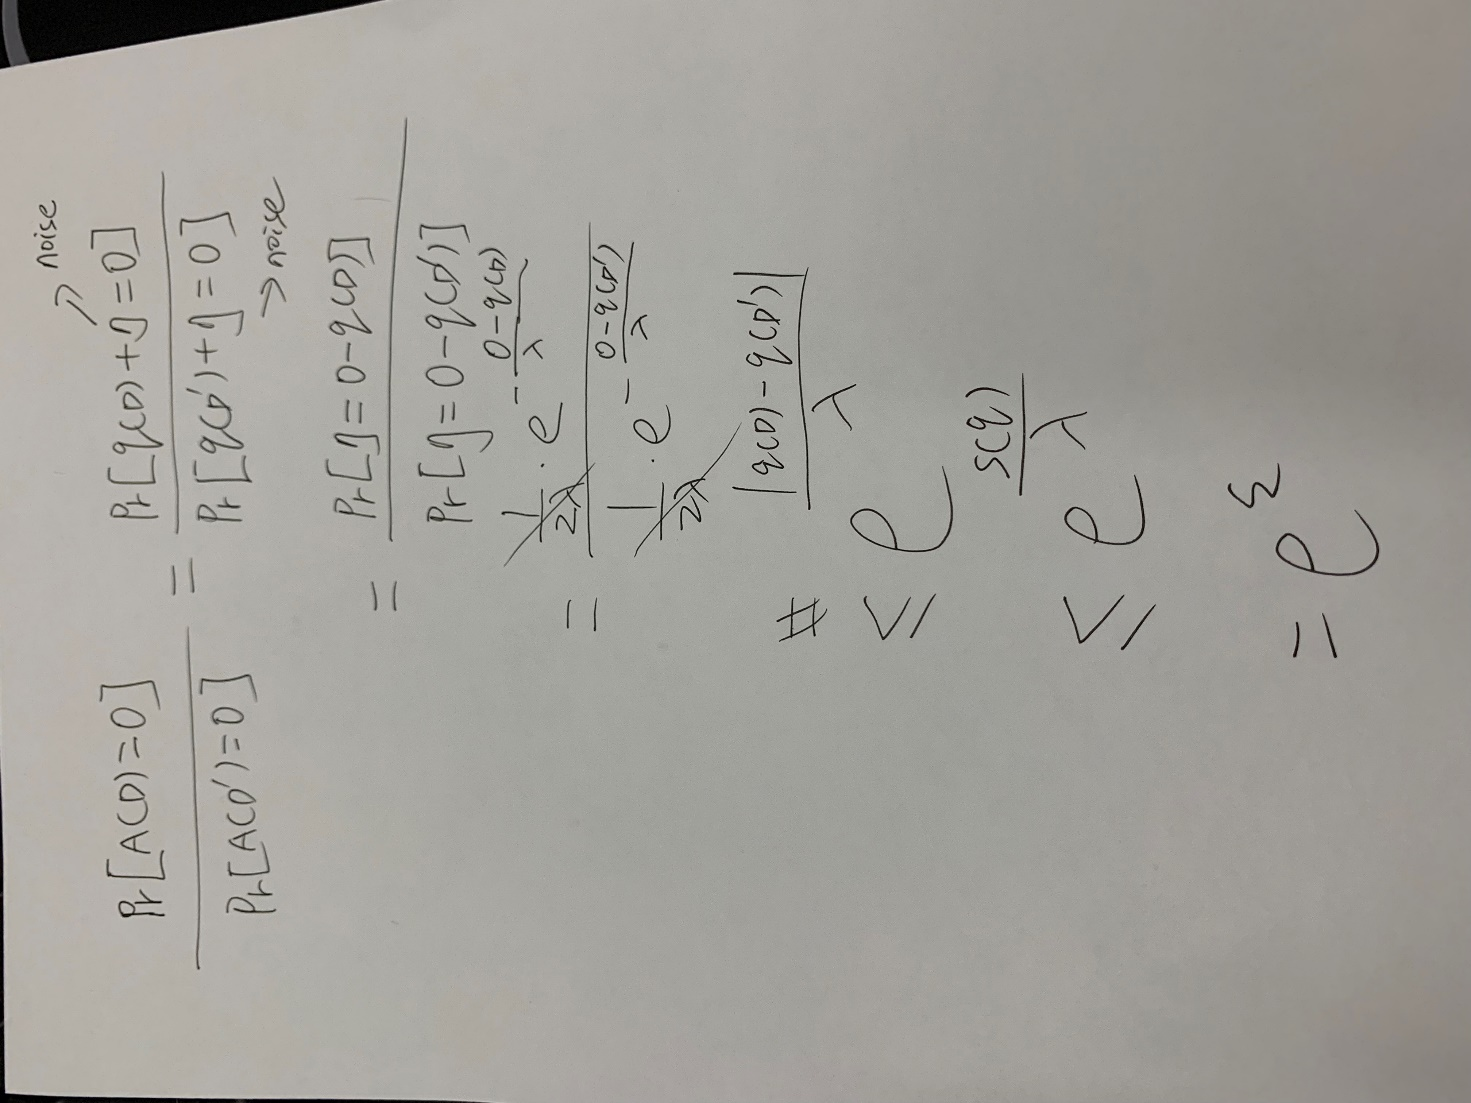 noise
Pr[A(D)=0] / Pr[A(D')=0] = Pr[q(D)+η=0] / Pr[q(D')+η=0]
noise
= Pr[η=0-q(D)] / Pr[η=0-q(D')]
= 1/2λ · e^-(0-q(D))/λ / 1/2λ · e^-(0-q(D'))/λ
≤ e^|q(D)-q(D')|/λ
≤ e^S(q)/λ
= e^ε